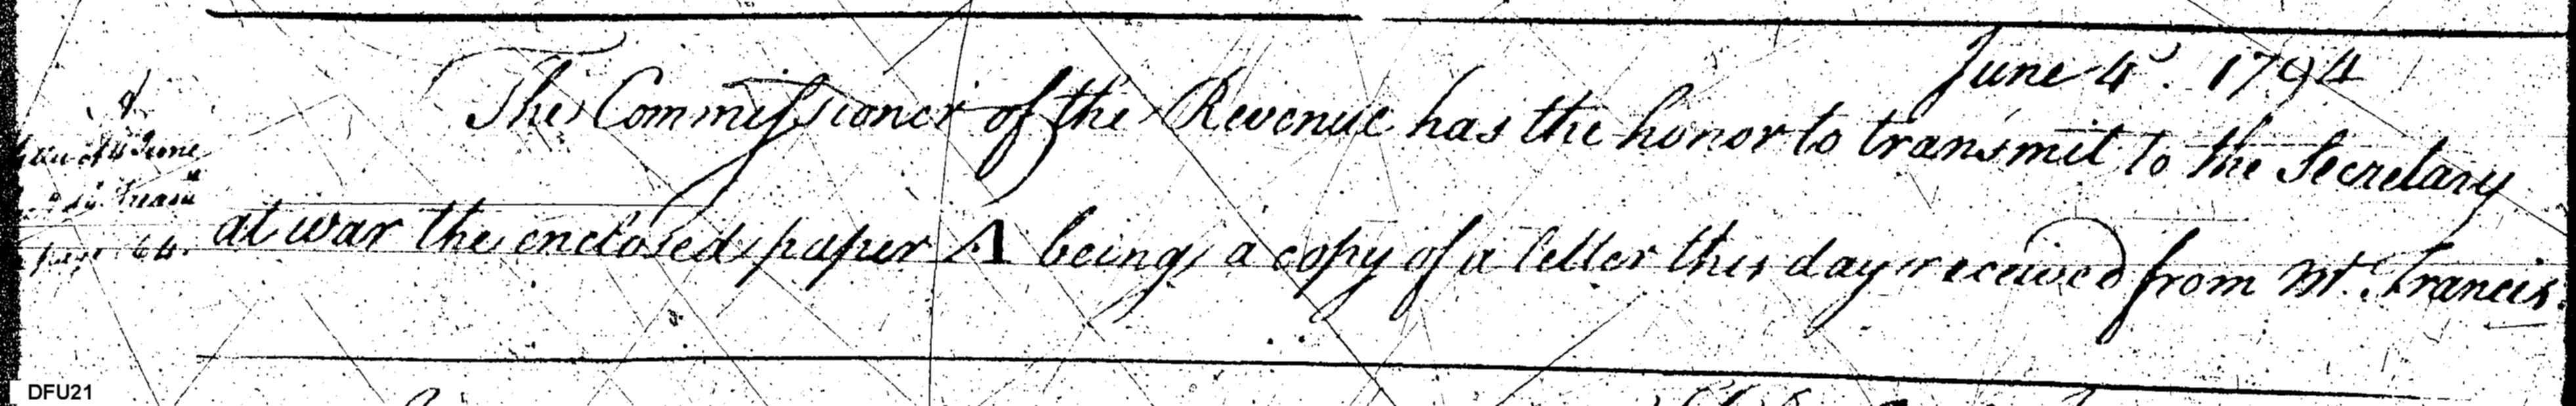 June 4th. 1794
The Commissioner of the Revenue has the honor to transmit to the Secretary
at war the enclosed paper A being a copy of a letter this day received from Mr. Francis.
A
of 4 June
page 64.
DFU21